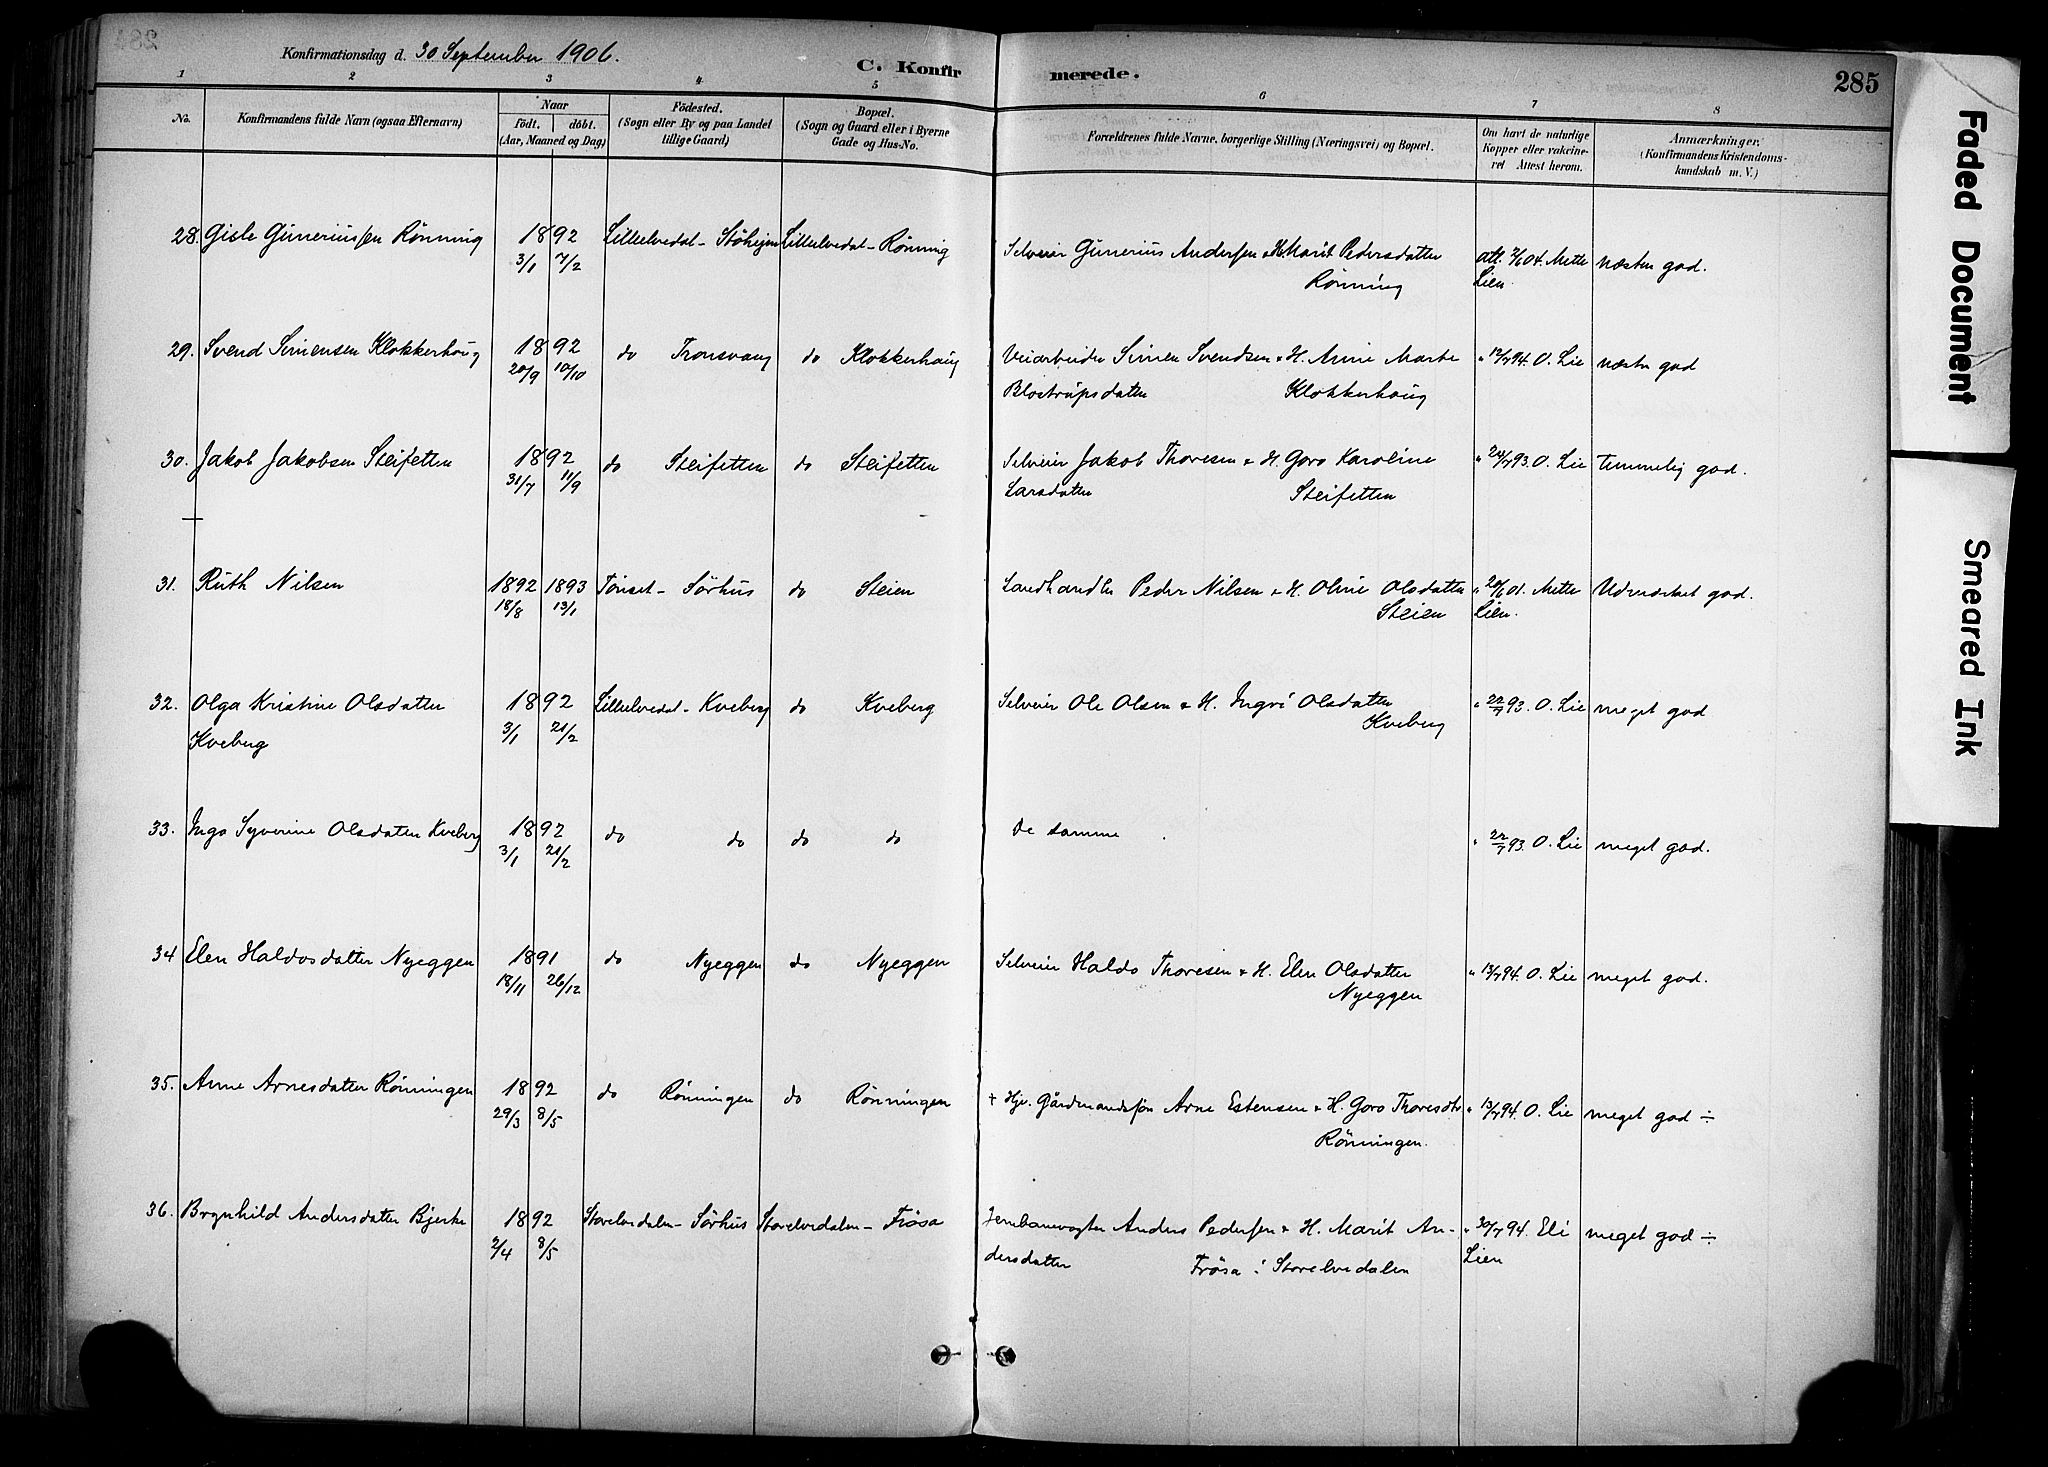 Konfirmationsdag d. 30 September 1906.
C. Konfirmerede.
285
1 2 3 4 5 6 7 8
No. Konfirmandens fulde Navn (ogsaa Efternavn) Naar født. døbt. (Aar, Maaned og Dag) Fødested. (Sogn eller By og paa Landet tillige Gaard) Bopæl. (Sogn og Gaard eller i Byerne Gade og Hus-No. Forældrenes fulde Navne, borgerlige Stilling (Næringsvei) og Bopæl. Om havt de naturlige Kopper eller vakcineret Attest herom. Anmærkninger. (Konfirmandens Kristendomskundskab m. V.)
28. Gisle Gunerius sen Rønning 1892 3/1 7/2 Lilleelvedal - Lilleelvedal - Rønning Selveier Gunerius Andersen & H. Marit Pedersdatter Rønning att. 04. Mette Lien næsten god.
29. Svend Simensen Klokkerhaug 1892 20/9 10/10 do Tronsvang do Klokkerhaug Veiarbeider Simen Svendsen & H. Anne Marte Blostrupsdatter Klokkerhaug " 12/7 94. O. Lie næsten god
30. Jakob Jakobsen Steifetten 1892 31/7 11/9 do Steifetten do Steifetten Selveier Jakob Thoresen & H. Goro Karoline Larsdatter Steifetten " 24/7 93. O. Lie temmelig god.
31. Ruth Nilsen 1892 18/8 1893 13/1 Tønset - Sørhus do Steien Landhandler Peder Nilsen & H. Oline Olsdatter Steien " 20/6 01. Mette Lien. Udmærket god.
32. Olga Kristine Olsdatter Kveberg 1892 3/1 21/2 Lilleelvedal - Kveberg do Kveberg Selveier Ole Olsen & H. Ingri Olsdatter Kveberg " 22/7 93. O. Lie meget god
33. Inga Syverine Olsdatter Kveberg 1892 3/1 21/2 do do do do De samme " 22/7 93. O. Lie meget god.
34 Elen Haldosdatter Nyeggen 1891 18/11 26/12 do Nyeggen do Nyeggen Selveier Haldo Thoresen & H. Elen Olsdatter Nyeggen " 13/7 94. O. Lie meget god.
35. Anne Arnesdatter Rønningen 1892 29/3 8/5 do Rønningen do Rønningen + Gårdmandssøn Arne Estensen & H. Goro Thoresdtr Rønningen. " 13/7 94. O. Lie meget god ÷
36. Brynhild Andersdatter Bjerke 1892 2/4 8/5 Storelvedalen - Sørhus Storelvedalen - Frøsa Jernbanevogter Anders Pedersen & H. Marit Andersdatter Frøsa i Storelvedalen " 30/7 94. Eli Lien meget god ÷
Faded Document
Smeared Ink